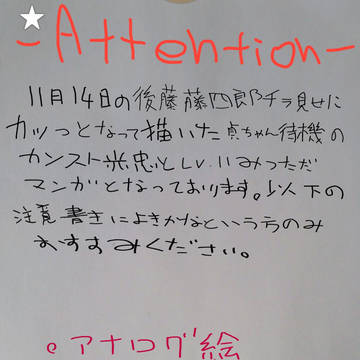 -Attention-
11月14日の後藤藤四郎チラ見せに
カッっとなって描いた貞ちゃん待機の
カンスト光忠とLv.1みつただ
マンガとなっております。以下の
注意書きによきかなというちのみ
おすすみください。
・アナログ絵